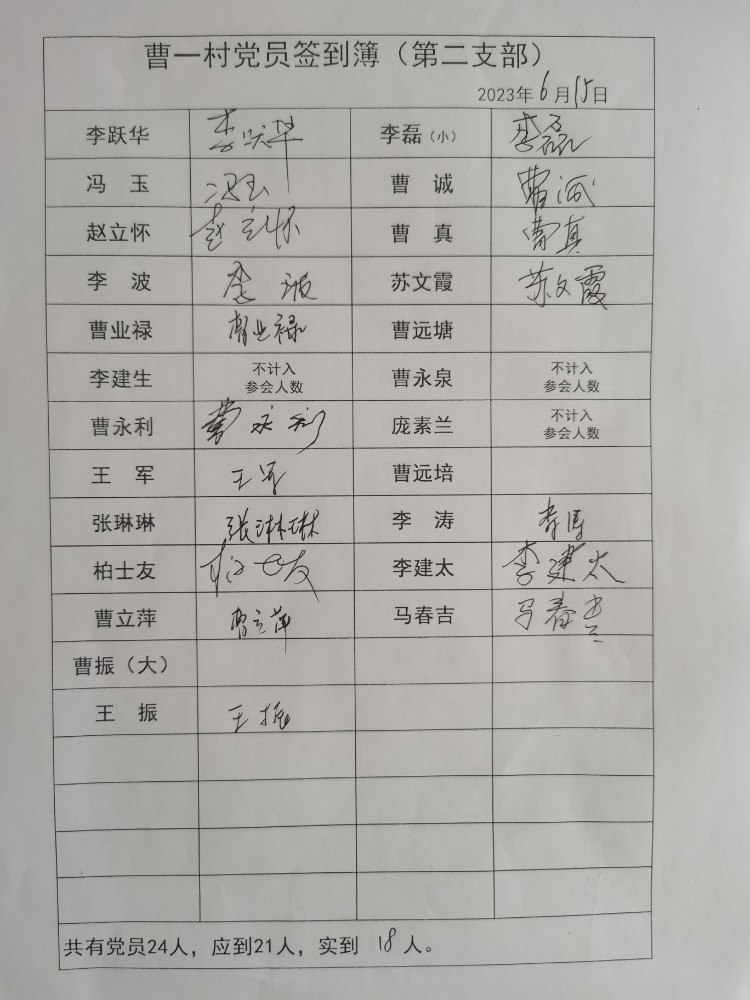 曹一村党员签到簿（第二支部）
2023年6月15日
李跃华 李跃华 李磊（小） 李磊
冯 玉 冯玉 曹 诚 曹诚
赵立怀 赵立怀 曹 真 曹真
李 波 李波 苏文霞 苏文霞
曹业禄 曹业禄 曹远塘
李建生 不计入 曹永泉 不计入
参会人数 参会人数
曹永利 曹永利 庞素兰 不计入
参会人数
王 军 王军 曹远培
张琳琳 张琳琳 李 涛 李涛
柏士友 柏士友 李建太 李建太
曹立萍 曹立萍 马春吉 马春吉
曹振（大）
王 振 王振
共有党员24人，应到21人，实到 18 人。